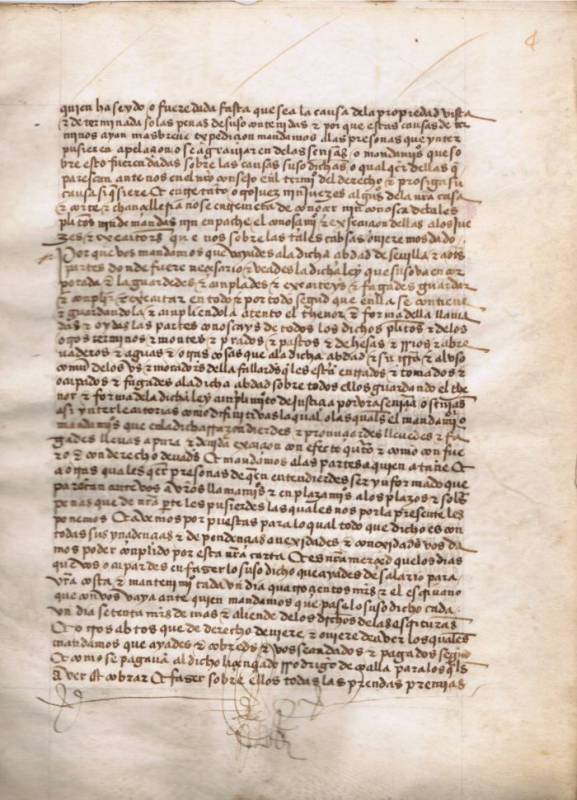 quien ha seydo o fuere dada fasta que sea la causa dela propiedad vista
& determinada so las penas de suso contenidas & por que estas causas de ter
minos ayan mas breve expedicion mandamos alas presonas que ynter
pusieren apelaçion o se agraviaren delas sençias o mandamios que so
bre esto fueren dadas sobre las causas suso dichas o qual qer dellas q
parescan ante nos en el nro consejo enl termio del derecho & prosiga su
causa si qsiere Et en ge tato oydores ni juezes algūos dela nra casa
& corte & chançelleria no se entremeta de conosçer ni conosca de tales
pleitos ni demandas ni en pache el conosçimio & exsecuçion dellas alos jue
zes & executors que nos sobre las tales cabsas oviere mos dado
Por que vos mandamos que vayades ala dicha çibdad de sevilla & aotās
partes donde fuere neçesario & veades la dicha ley que suso va encor
porada & la guardedes & cunplades & executeys & fagades guardar
& conplir & executar en todo & por todo segund que enlla se contiene
& guardandola & cunpliendola atento el thenor & forma della llama
das & oydas las partes conoscays de todos los dichos pleitos & delos
otros terminos & montes & prados & pastos & dehesas & exidos & abre
vaderos & aguas & otras cosas que ala dicha çibdad & su trra & al uso
comun delos vos & moradors della fallards q les estā entrados & tomados &
ocupados & fagades ala dicha çibdad sobre todos ellos guardando el the
nor & forma dela dicha ley cunplimito de justiçia por vra sençia o sençias
asi ynterlocutorias como difinitivas la qual o las quals el mandamio o
mandamios que enla dicha rrazon dierdes & pronunçiardes lleuedes & fa
gades llevar a pura & devida execuçion con efecto quāto & como con fue
ro & con derecho devads Et mandamos alas partes a quien atañe Et
a otras quales qer presonas de qen entendierdes ser ynformado que
parescan ante vos a vros llamamios & enplazamios alos plazos & solas
penas que de nra parte les pusierdes las quales nos por la presente les
ponemos Et avemos por puestas para lo qual todo que dicho es con
todas sus ynçidençias & dependençias anexidades & conexidades vos da
mos poder conplido por esta nra carta Et es nra merçed que los dias
qu vos ocupardes en fazer lo suso dicho que ayades de salario para
vra costa & mantenimio cada un dia quatroçientos mrs & el escrivano
que con vos vaya ante quien mandamos que pase lo suso dicho cada
un dia setenta mrs de mas & aliende delos derechos delas escrituras
Et otros abtos que de derecho deviere & oviere de aver los quales
mandamos que ayades & cobredes & vos sean dados & pagados segūd
Et como se pagavā al dicho liçençiado rrodrigo de coalla para los qles
aver & cobrar Et fazer sobre ellos todas las prendas premias